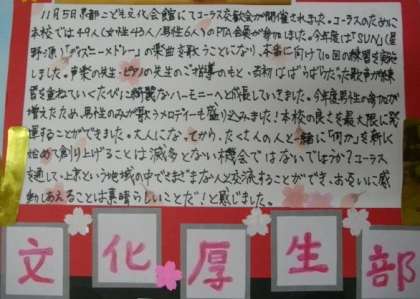 11月5日京都こども文化会館にてコーラス交歓会が開催されました。コーラスのために
本校では49人(女性43人/男性6人)のPTA会員が参加しました。今年度は「SUN」(星
野源)「ディズニーメドレー」の楽曲を歌うことになり、本番に向けて10回の練習を実施
しました。声楽の先生・ピアノの先生のご指導のもと、最初はばらばらだった歌声が練習
を重ねていくたびに綺麗なハーモニーへと成長していきました。今年度男性の参加が
増えたため、男性のみが歌うメロディーも盛り込みました!本校の良さを最大限に発
揮することができました。大人になってから、たくさんの人と一緒に「何か」を新しく
始めて創り上げることは滅多とない機会ではないでしょうか?コーラス
を通して、上京という地域の中でさまざまな人と交流することができ、お互いに感
動しあえることは素晴らしいことだ!と感じました。
文化厚生部